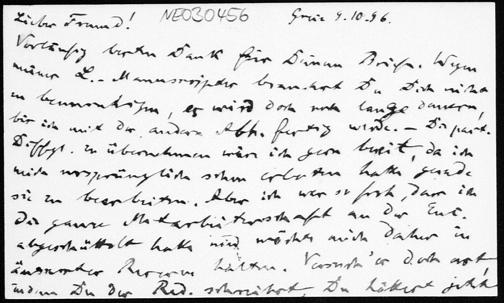 Lieber Freund! NE030456 Graz 9.10.96.
Vorläufig besten Dank für Deinen Brief. Wegen
meines L.-Manuscriptes brauchst Du Dich nicht
zu beunruhigen, es wird doch noch lange dauern,
bis ich mit der andern Abh. fertig werde. – Die part.
Diffgl. zu übernehmen wäre ich gern bereit, da ich
mich ursprünglich schon erboten hatte gerade
sie zu bearbeiten. Aber ich war so froh, dass ich
die ganze Mitarbeiterschaft an der Enc.
abgeschüttelt hatte und möchte mich daher in
äusserster Reserve halten. Versuch's doch erst
indem Du der Red. schreibst, Du hättest jetzt